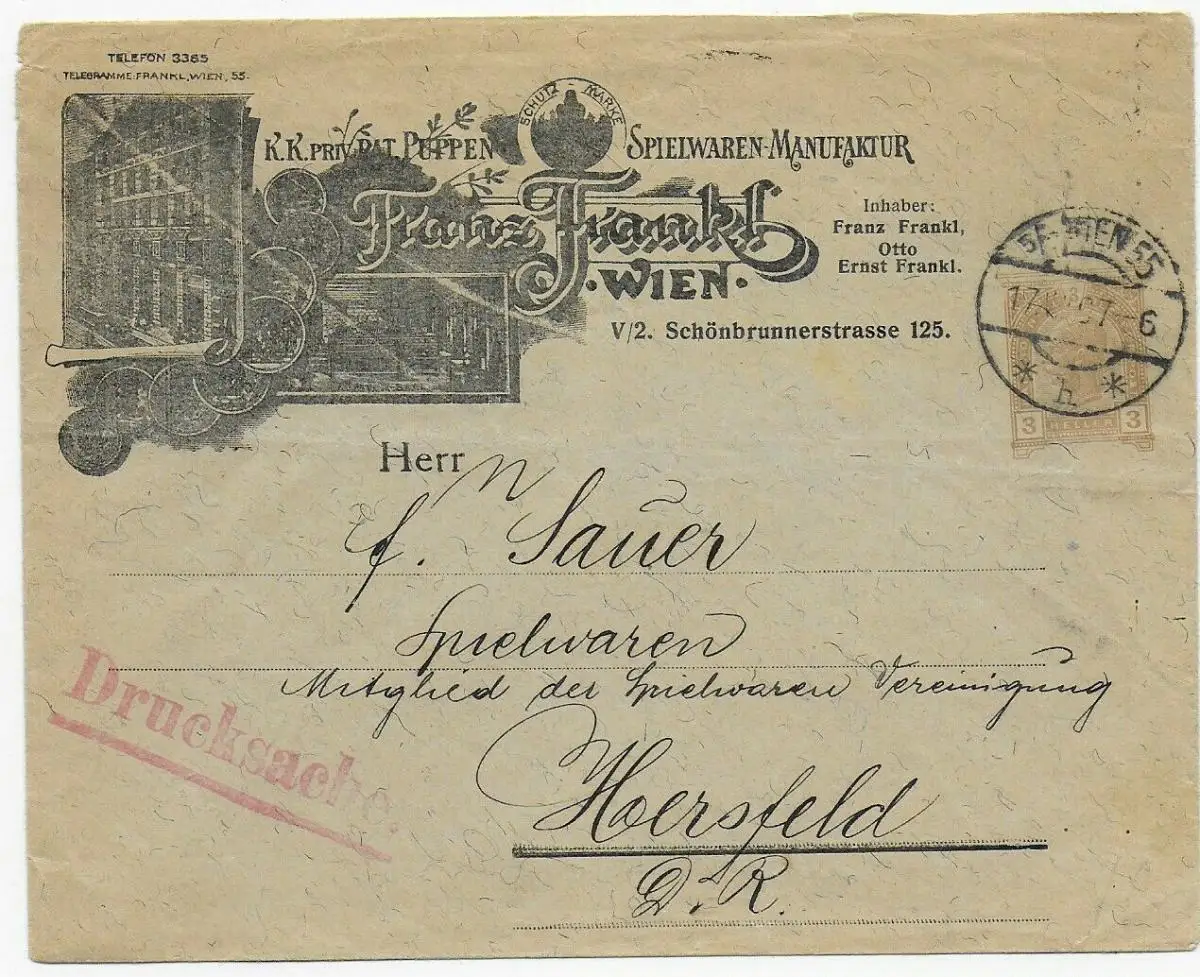 TELEFON 3365
TELEGRAMME: FRANKL, WIEN, 55.
SCHUTZ MARKE
K.K. PRIV. PAT. PUPPEN SPIELWAREN-MANUFAKTUR
Franz Frankl
WIEN.
Inhaber:
Franz Frankl,
Otto
Ernst Frankl.
V/2. Schönbrunnerstrasse 125.
WIEN 55
17
6
* h *
3 HELLER 3
Herrn
f. Sauer
Spielwaren
Mitglied der Spielwaren Vereinigung
Drucksache.
Hersfeld
D. R.